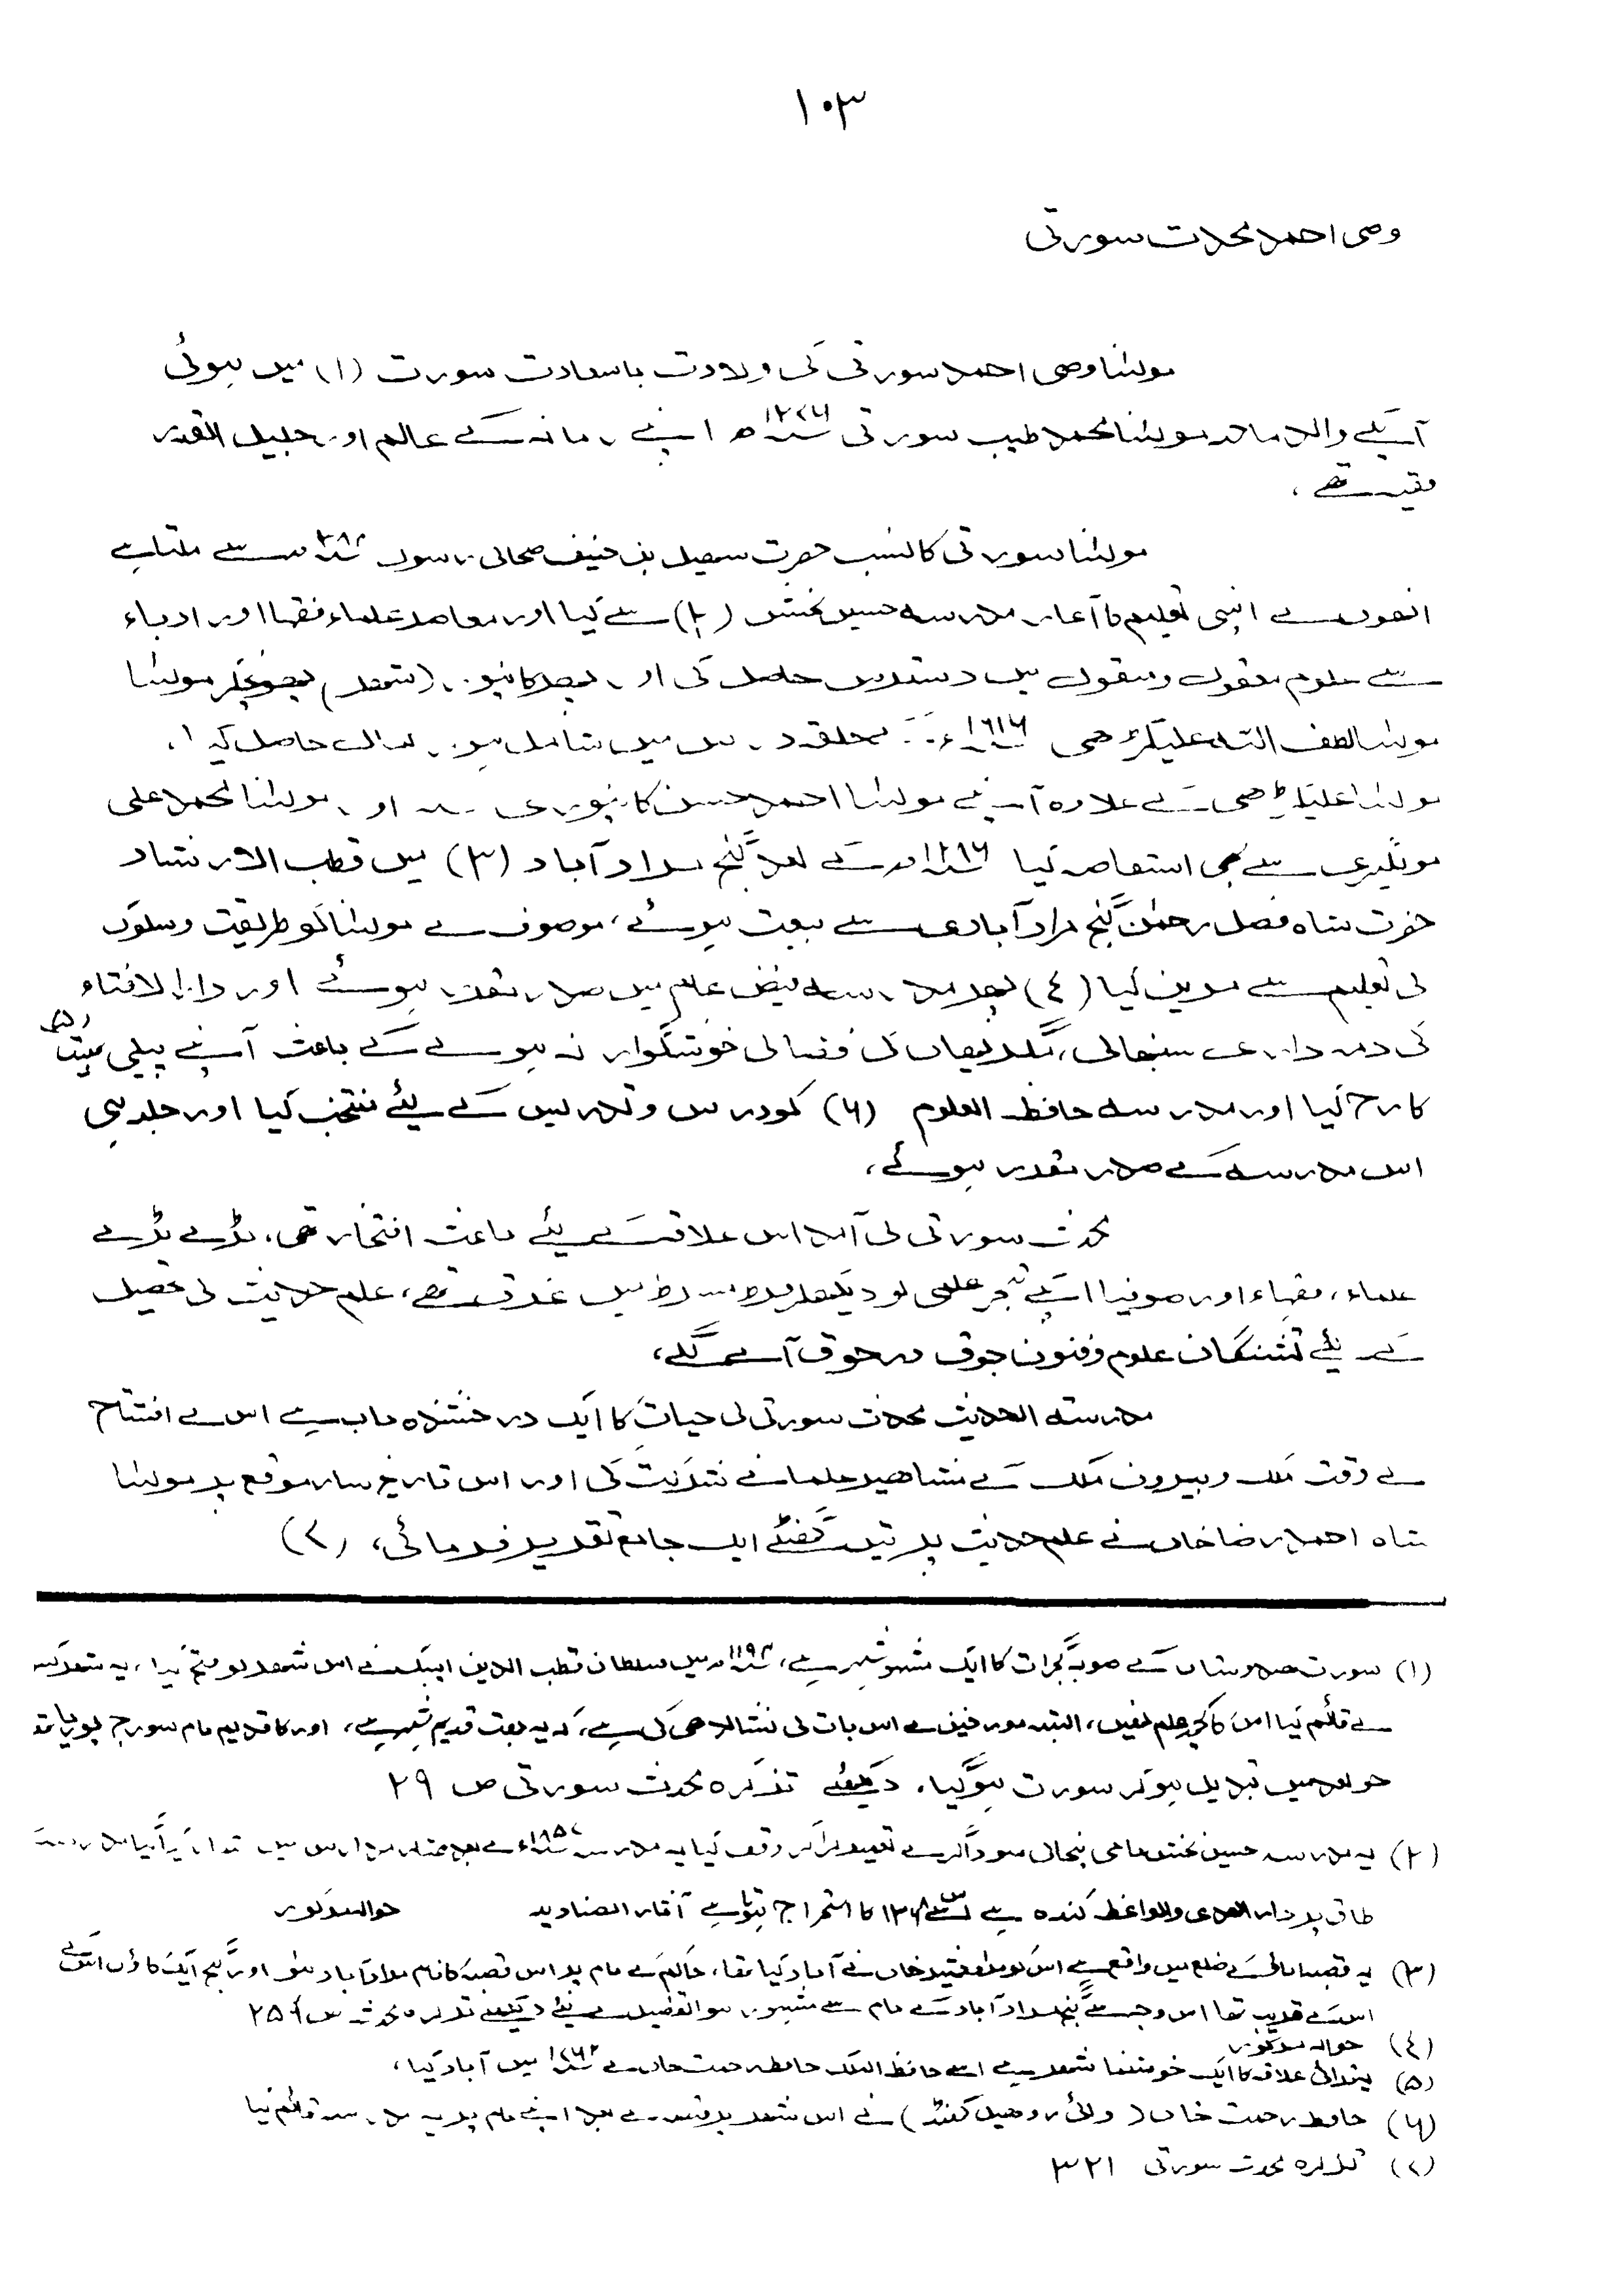 ۱۰۳
وصی احمد محدث سورتی
مولٰنا وصی احمد سورتی کی ولادت باسعادت سورت (۱) میں ہوئی
آپکے والد ماجد مولٰنا محمد طیب سورتی ۱۲۷۶ھ اپنے زمانہ کے عالم اور جلیل القدر
فقیہ تھے،
مولٰنا سورتی کا نسب حضرت سھیل بن حنیف صحابی رسول سے ملتا ہے
انھوں نے اپنی تعلیم کا آغاز مدرسہ حسین بخش (۲) سے کیا اور معاصر علماء فقہا اور ادباء
سے علوم معقول و منقول میں دسترس حاصل کی اور بعد کانپور (شھر) مولٰنا
مولٰنا لطف اللہ علیگڑھی حلقہ درس میں شامل ہو کمال حاصل کیا،
مولٰنا علیگڑھی کے علاوہ آپ نے مولٰنا احمد حسن کانپوری اور مولٰنا محمد علی
مونگیری سے بھی استفادہ کیا کے بعد گنج مراد آباد (۳) میں قطب الارشاد
حضرت شاہ فضل رحمٰن گنج مرادآبادی سے بیعت ہوئے، موصوف نے مولٰنا کو طریقت و سلوک
کی تعلیم سے مزین کیا (٤) بعد مدرسہ فیض عام میں صدر مقرر ہوئے اور دار الافتاء
کی ذمہ داری سنبھالی، مگر یھاں کی فضا کی خوشگوار نہ ہونے کے باعث آپ نے پیلی بھیت (۵)
کا رخ کیا اور مدرسہ حافظ العلوم (۶) کو درس و تدریس کے لیئے منتخب کیا اور جلد ہی
اس مدرسہ کے صدر مقرر ہوئے،
محدث سورتی کی آمد اس علاقہ کے لیئے باعث افتخار تھی، بڑے بڑے
علماء، فقہاء اور صوفیا آپکے تبحر علمی کو دیکھکر میں غرق تھے، علم حدیث کی تحصیل
کے لیئے تشنگان علوم و فنون جوق در جوق آنے لگے،
مدرستہ الحدیث محدث سورتی کی حیات کا ایک درخشندہ باب ہے اس کے افتتاح
کے وقت ملک و بیرون ملک کے مشاھیر علما نے شرکت کی اور اس تاریخ ساز موقع پر مولٰنا
شاہ احمد رضا خاں نے علم حدیث پر تین گھنٹے ایک جامع تقریر فرمائی، (۷)
(۱) سورت ھندوستاں کے صوبہ گجرات کا ایک مشہور شہر ہے، میں سلطان قطب الدین ایبک نے اس شھر کو فتح کیا، یہ شھر کس
نے قائم کیا اس کا کچھ علم نھیں، البتہ مورخین نے اس بات کی نشاندھی کی ہے، کہ یہ بھت قدیم شہر ہے، اور کا قدیم نام سورج پور یا تھا
جو بعد میں تبدیل ہوکر سورت ہوگیا، دیکھئے تذکرہ محدث سورتی ص ۲۹
(۲) یہ مدرسہ حسین بخش نامی پنجابی سوداگر نے تعمیر کراکر وقف کیا یہ مدرسہ ۱۸۵۷ء کے بعد ممتاز مدارس میں
طاق پر دار الھدی والواعظ کندہ ہے کا استخراج ہوتا ہے آثار الصنادید حوالہ مذکور
(۳) یہ قصبہ ضلع میں واقع ہے اس کو خاں نے آباد کیا تھا، حاکم کے نام پر اس قصبہ کا نام مراد آباد ہوا اور گنج ایک گاؤں
اس کے قریب تھا اس وجہ سے گنج مراد آباد کے نام سے مشہور ہوا تفصیل کے لیئے دیکھئے تذکرہ محدث ص ۲۵۶
(٤) حوالہ مذکور
(۵) علاقہ کا ایک خوشنما شھر ہے اسے حافظ الملک حافظ رحمت خاں نے میں آباد کیا،
(۶) حافظ رحمت خاں (والئ روھیل کھنڈ) نے اس شھر پر قبضہ کے بعد اپنے نام پر یہ مدرسہ قائم کیا
(۷) تذکرہ محدث سورتی ۳۲۱